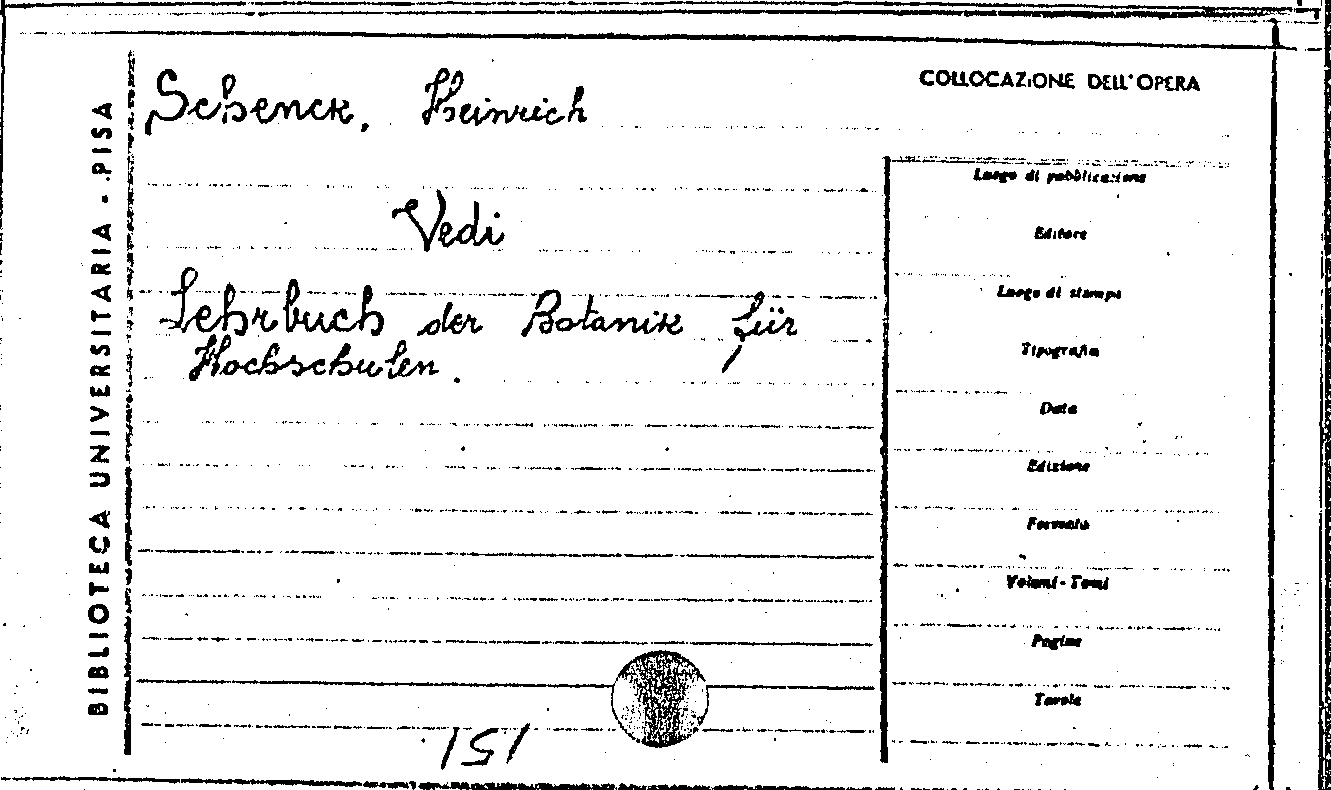 BIBLIOTECA UNIVERSITARIA - PISA
Schenck, Heinrich
Vedi
Lehrbuch der Botanik für
Hochschulen.
151
COLLOCAZIONE DELL'OPERA
Luogo di pubblicazione
Editore
Luogo di stampa
Tipografia
Data
Edizione
Formato
Volumi - Tomi
Pagine
Tavole